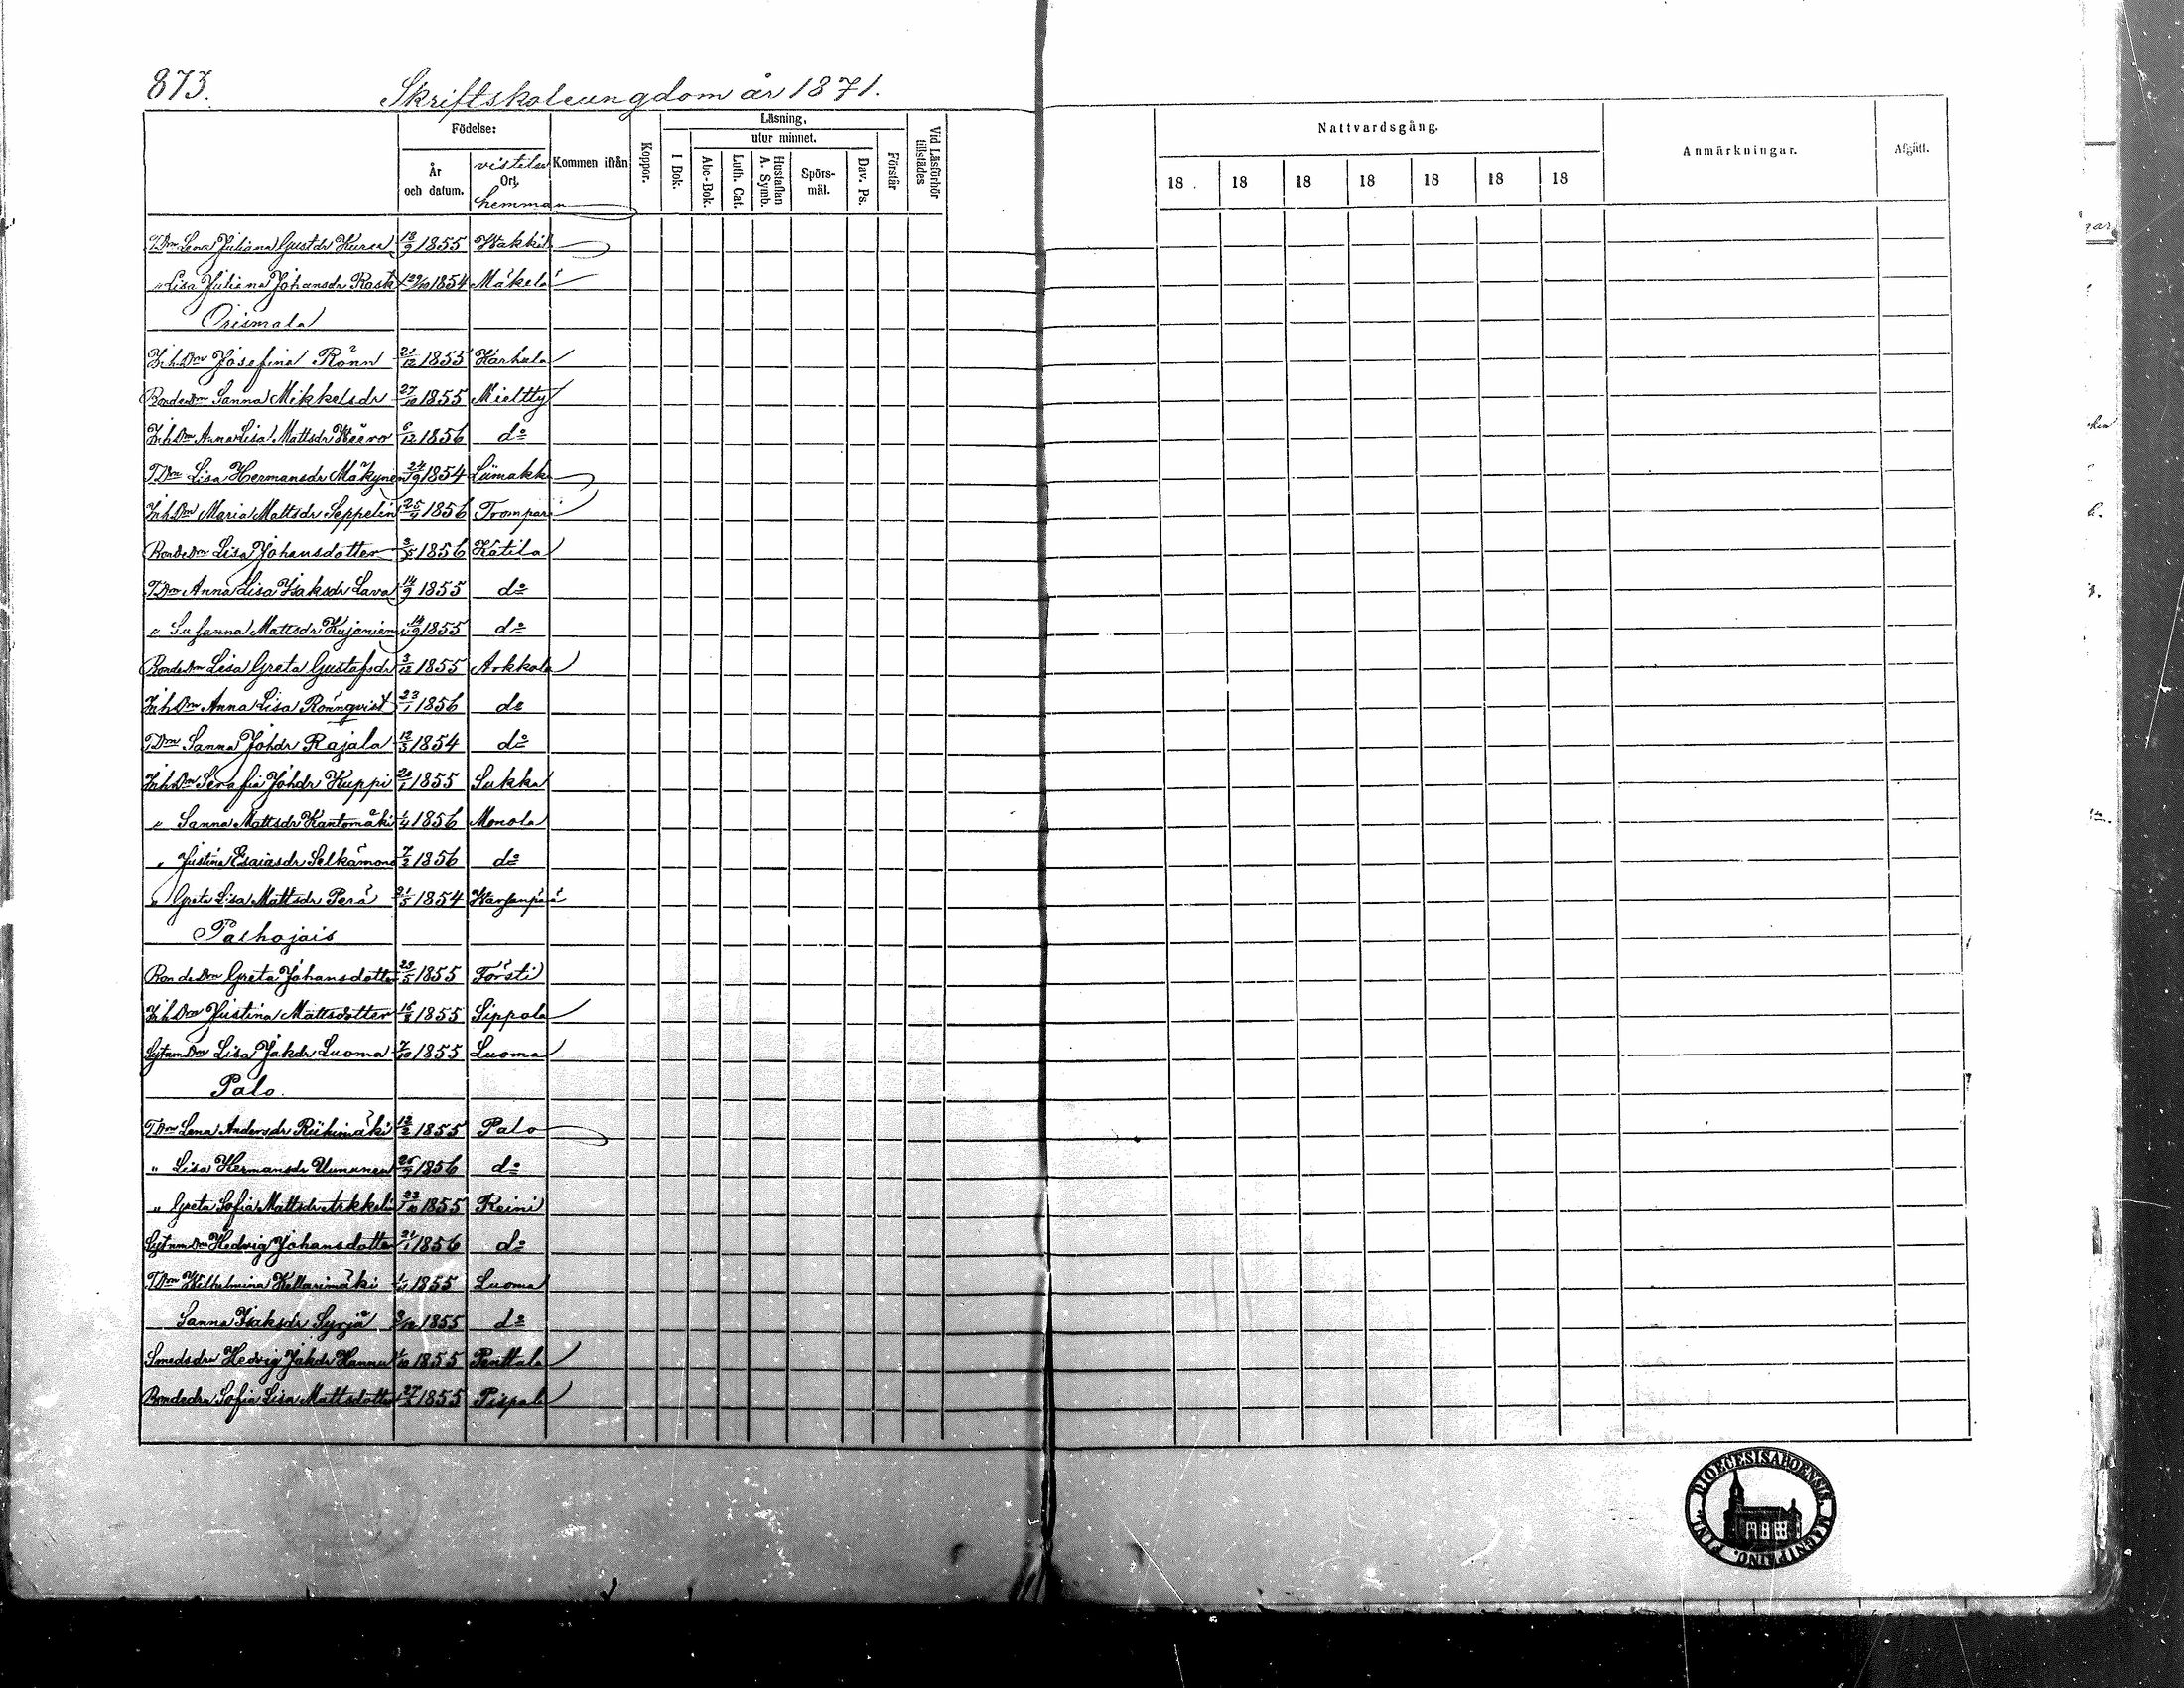 873. Skriftskoleungdom år 1871.
Födelse: Läsning, Nattvardsgång.
utur minnet.
År och datum. vistelse Ort, hemman Kommen ifrån Koppor. I Bok. Abc-Bok. Luth. Cat. Hustaflan A. Symb. Spörs-mål. Dav. Ps. Förstår Vid Läsförhör tillstädes 18 18 18 18 18 18 18 Anmärkningar. Afgått.
TDm Lena Juliana Gustdr 18/9 1855
" Lisa Juliana Johansdr Rask 29/10 1854 Mäkelä
Orismala
InhDm Josefina Rönn 21/12 1855 Harhala
BondeDm Sanna Mikkelsdr 27/10 1855 Mieltty
InhDm Anna Lisa Mattsdr 6/12 1856 do
TDm Lisa Hermansdr Mäkynen 24/9 1854 Liimakka
InhDm Maria Mattsdr Seppelin 1856 Trompari
BondeDm Lisa Johansdotter 3/5 1856 Katila
TDm Anna Lisa Isaksdr Lava 14/9 1855 do
" Susanna Mattsdr Kujaniemi 14/9 1855 do
BondeDm Lisa Greta Gustafsdr 3/12 1855 Arkkola
InhDm Anna Lisa Rönnqvist 23/1 1856 do
TDm Sanna Johdr Rajala 12/3 1854 do
InhDm Serafia Johdr Kuppi 20/1 1855 Sukka
" Sanna Mattsdr Kantomäki 1/4 1856 Monola
" Justina Esaiasdr 7/2 1856 do
" Greta Lisa Mattsdr Perä 21/5 1854
Palhojais
BondeDm Greta Johansdotter 23/5 1855 Försti
InhDm Justina Mattsdotter 16/8 1855 Sippola
SytnmDm Lisa Jakdr Luoma 7/10 1855 Luoma
Palo.
TDm Lena Andersdr Riihimäki 12/2 1855 Palo
" Lisa Hermansdr 1856 do
" Greta Sofia Mattsdr Arkkelin 22/10 1855 Reini
SytnmDm Hedvig Johansdotter 21/1 1856 do
TDm Wilhelmina Kellarimäki 1855 Luoma
Sanna Isaksdr Syrjä 1855 do
Smedsdr Hedvig Jakdr Hannu 1/10 1855 Penttala
Bondedr Sofia Lisa Mattsdotter 1855 Pispala
DIOECESIS ABOENSIS MAGNI PRINC. FINL.